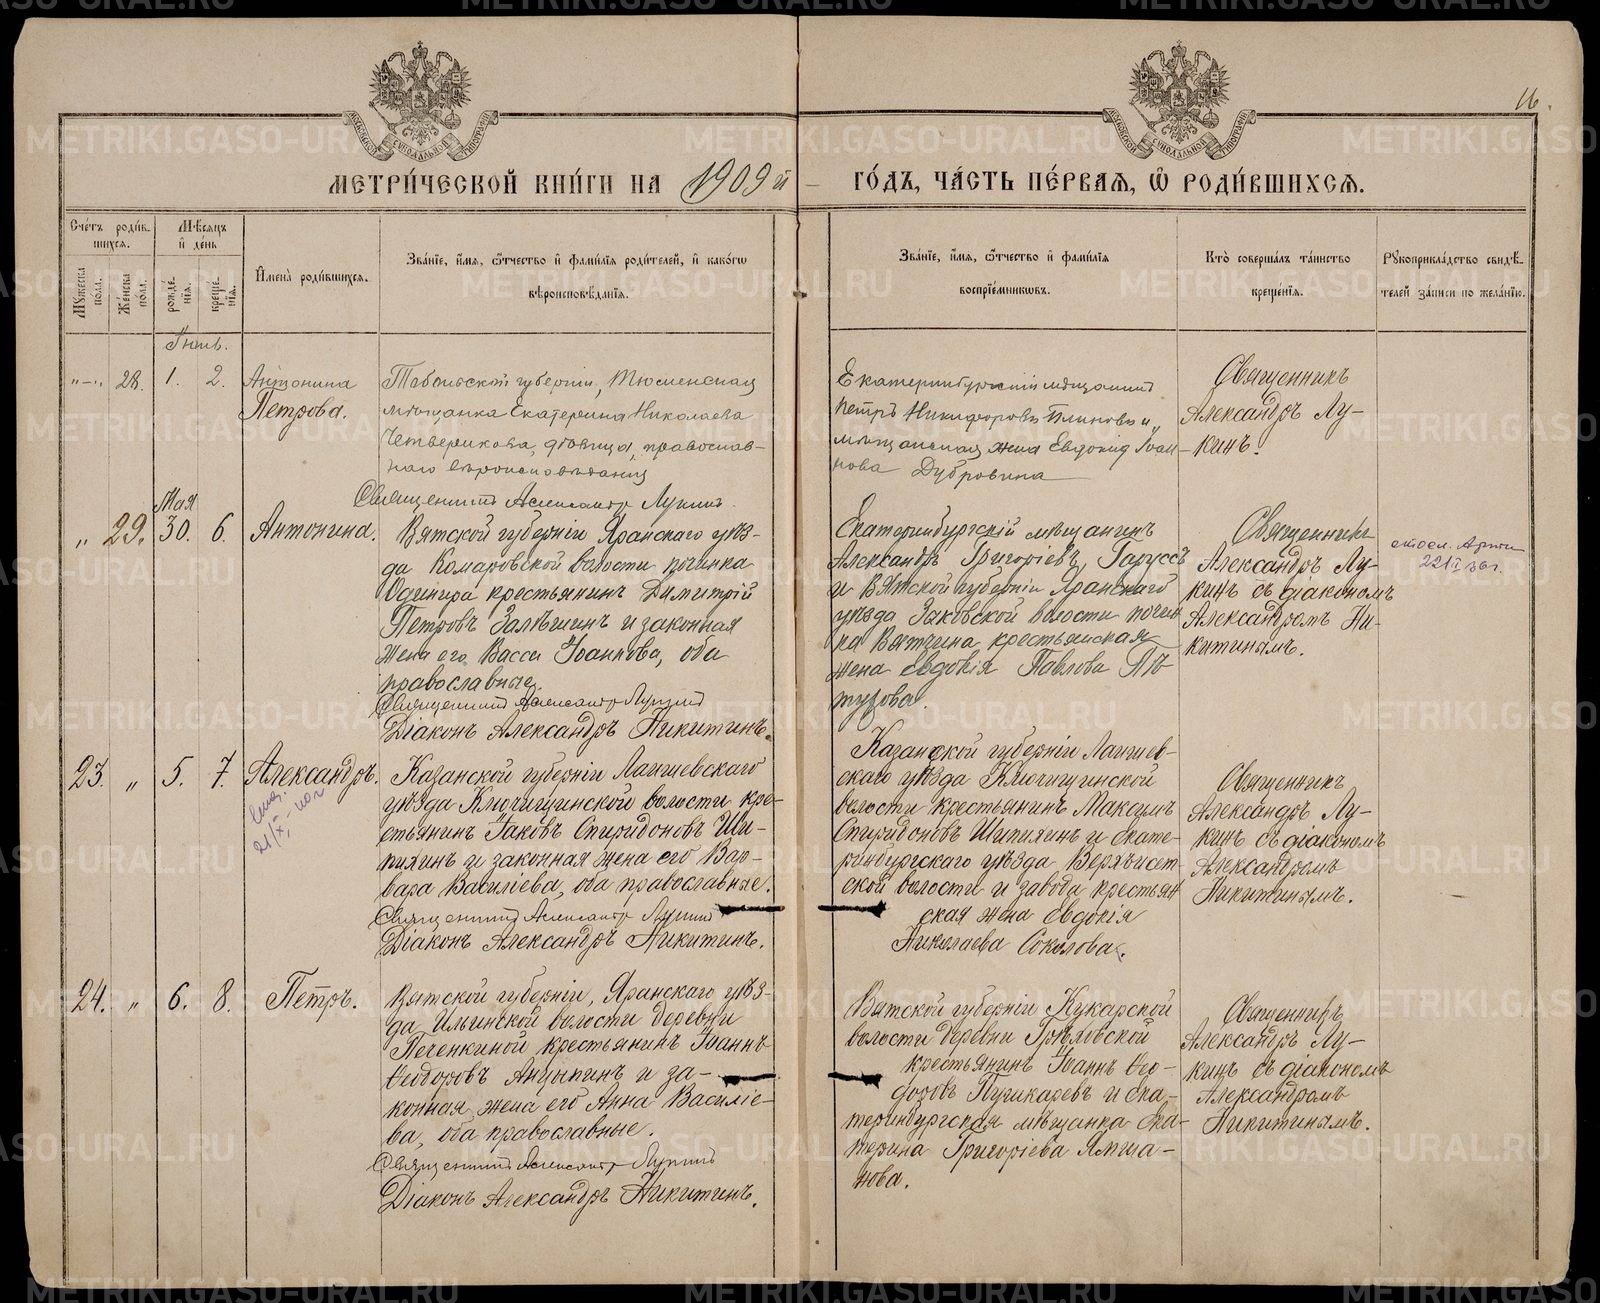 16.
МЕТРИ́ЧЕСКОЙ КНИ́ГИ НА 1909 й ГО́ДЪ, ЧА́СТЬ ПЕ́РВАЯ, Ѽ РОДИ́ВШИХСЯ.
Сче́тъ роди́в-
шихся.
Мѣ́сяцъ
и҆ де́нь
Мꙋ́жеска по́ла.
Же́нска по́ла.
рожде́-
нїя.
креще́-
нїя.
И҆мена̀ роди́вшихся.
Зва́нїе, и҆́мя, ѻ҆́тчество и҆ фами́лїя роди́телей, и҆ како́гѡ
вѣроисповѣ́данїя.
Зва́нїе, и҆́мя, ѻ҆́тчество и҆ фами́лїя
воспрїе́мникѡвъ.
Кто̀ соверша́лъ та́инство
креще́нїя.
Рꙋкоприкла́дство свидѣ́-
телей за́писи по жела́нїю.
Іюнь.
"—" 28. 1. 2.
Антонина
Петрова.
Тобольской губерніи, Тюменская
мѣщанка Екатерина Николаева
Четверикова, дѣвица, православ-
наго вѣроисповѣданія
Священникъ Александръ Лукинъ.
Екатеринбургскій мѣщанинъ
Петръ Никифоровъ и
мѣщанская жена Евдокія Іоан-
нова Дубровина
Священникъ
Александръ Лу-
кинъ.
Мая
" 29. 30. 6. Антонина.
Вятской губерніи Яранскаго уѣз-
да Комаровской волости починка
крестьянинъ Димитрій
Петровъ Залѣшинъ и законная
жена его Васса Іоаннова, оба
православные.
Священникъ Александръ Лукинъ
Діаконъ Александръ Никитинъ.
Екатеринбургскій мѣщанинъ
Александръ Григоріевъ Гаруссъ
и Вятской губерніи Яранскаго
уѣзда волости почин-
ка крестьянская
жена Евдокія Павлова Пѣ-
тухова.
Священникъ
Александръ Лу-
кинъ съ діакономъ
Александромъ Ни-
китинымъ.
23. " 5. 7. Александръ.
Казанской губерніи Лаишевскаго
уѣзда Ключищинской волости кре-
стьянинъ Іаковъ Спиридоновъ Ши-
пилинъ и законная жена его Вар-
вара Василіева, оба православные.
Священникъ Александръ Лукинъ
Діаконъ Александръ Никитинъ.
Казанской губерніи Лаишев-
скаго уѣзда Ключищинской
волости крестьянинъ Максимъ
Спиридоновъ Шипилинъ и Екате-
ринбургскаго уѣзда Верхъисет-
ской волости и завода крестьян-
ская жена Евдокія
Николаева Соколова.
Священникъ
Александръ Лу-
кинъ съ діакономъ
Александромъ
Никитинымъ.
24. " 6. 8. Петръ.
Вятской губерніи, Яранскаго уѣз-
да Ильинской волости деревни
Печенкиной крестьянинъ Іоаннъ
Ѳеодоровъ Анцыпинъ и за-
конная жена его Анна Василіе-
ва, оба православные.
Священникъ Александръ Лукинъ
Діаконъ Александръ Никитинъ.
Вятской губерніи Кукарской
волости деревни
крестьянинъ Іоаннъ Ѳео-
доровъ Пушкаревъ и Ека-
теринбургская мѣщанка Ека-
терина Григоріева Ямша-
нова.
Священникъ
Александръ Лу-
кинъ съ діакономъ
Александромъ
Никитинымъ.
METRIKI.GASO-URAL.RU